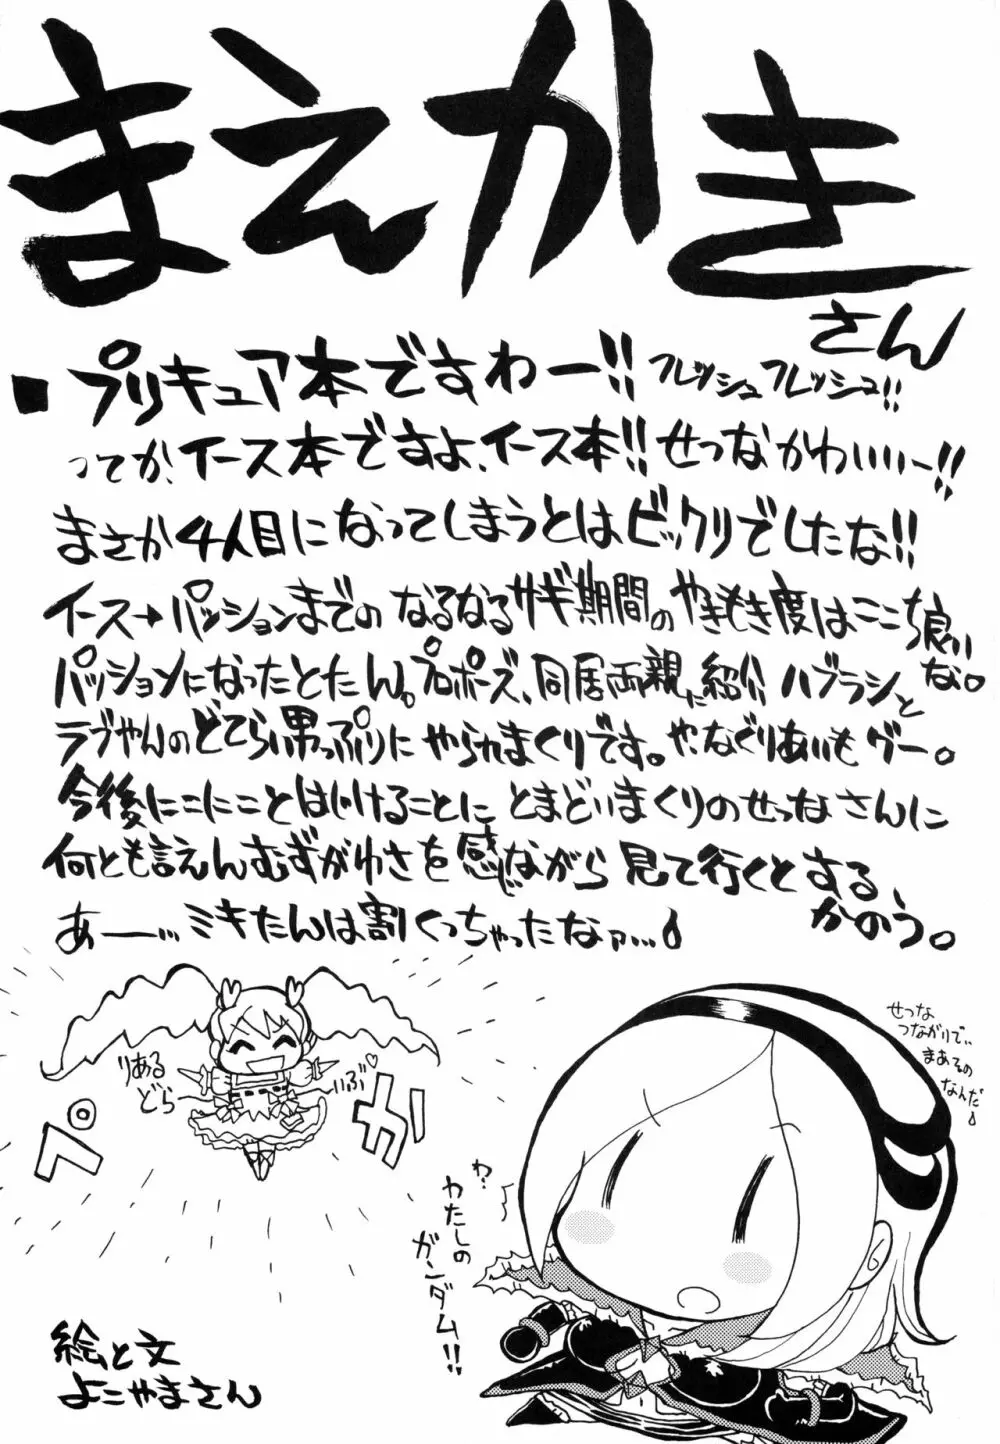 まえかき
さん
■プリキュア本ですわー!! フレッシュフレッシュ!!
ってか、イース本ですよ、イース本!! せつなかわいいー!!
まさか4人目になってしまうとはビックリでしたな!!
イース→パッションまでのなるなるサギ期間のやきもき度はここち良いな。
パッションになったとたん。プロポーズ、同居両親に紹介ハブラシと
ラブやんのどてらい男っぷりにやられまくりです。や、なぐりあいもグー。
今後にこにことはじけることにとまどいまくりのせつなさんに
何とも言えんむずがゆさを感じながら見て行くとする、
かのう。
あー…ミキたんは割くっちゃったなァ…
りあるどら
いぶ♥
ペ
カ
せつな
つながりで…
まあその
なんだ
わ?
わたしの
ガンダム!!
絵と文
よこやまさん